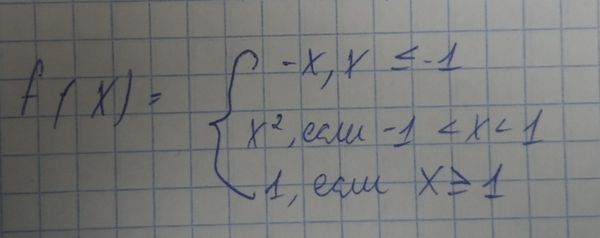 -x, x ≤ -1
f(x) = { x², если -1 < x < 1
1, если x ≥ 1